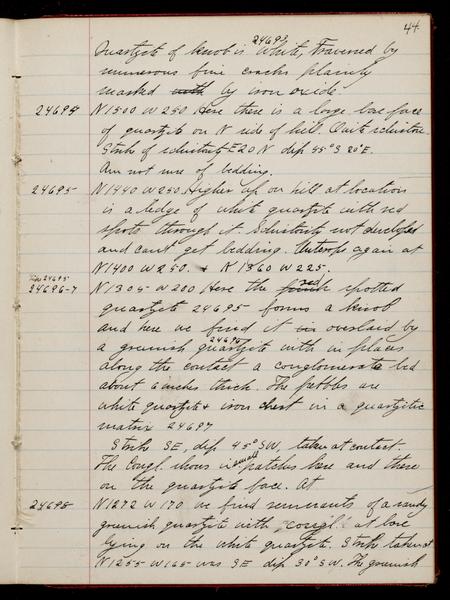 44
24693
Quartzite of knob is white, traversed by
numerous fine cracks plainly
marked with by iron oxide.
24694 N1500 W250 Here there is a large bare face
of quartzite on N side of hill. Quite schistose.
Strike of schistosity E20N dip 45° S 20° E.
Am not sure of bedding.
24695 N1440 W250 Higher up on hill at location
is a ledge of white quartzite with red
spots through it. Schistosity not developed
and can't get bedding. Outcrops again at
N1400 W250. & N1360 W225.
24695
24696-7 N1305 W200 Here the red spotted
quartzite 24695 forms a knob
and here we find it overlaid by
24696
a greenish quartzite with in places
along the contact a conglomerate bed
about 6 inches thick. The pebbles are
white quartzite & iron chert in a quartzitic
matrix 24697
Strike SE, dip 45° SW, taken at contact.
The Congl. shows in small patches here and there
on the quartzite face. At
24698 N1272 W170 we find remnants of a sandy
greenish quartzite with congl. at base
lying on the white quartzite. Strike taken at
N1255 W165 was SE dip 30° SW. The greenish